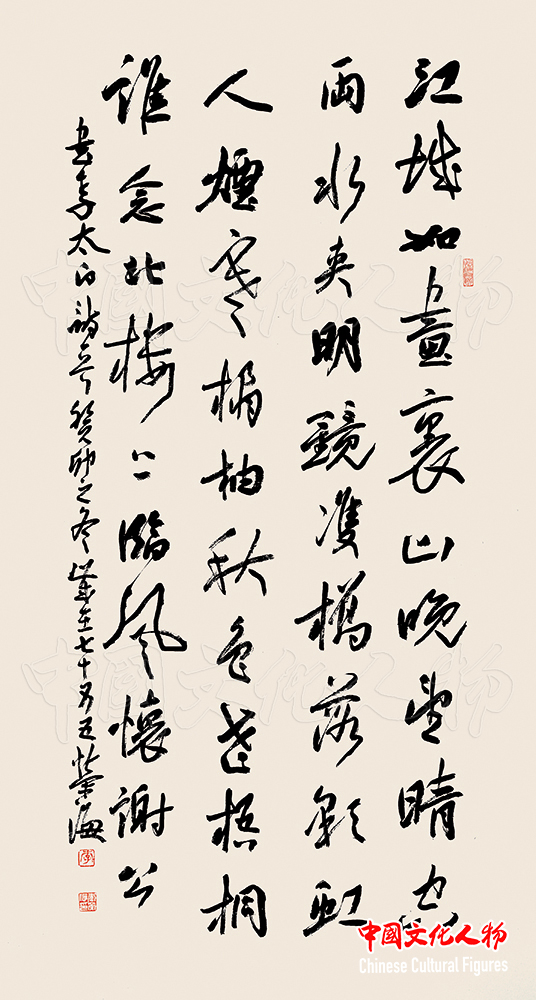 江城如畫裏山晚望晴空
兩水夾明鏡雙橋落彩虹
人煙寒橘柚秋色老梧桐
誰念北樓上臨風懷謝公
書李太白詩癸卯之冬歲至七十又五榮海
中國文化人物
中國文化人物
中國文化人物
Chinese Cultural Figures